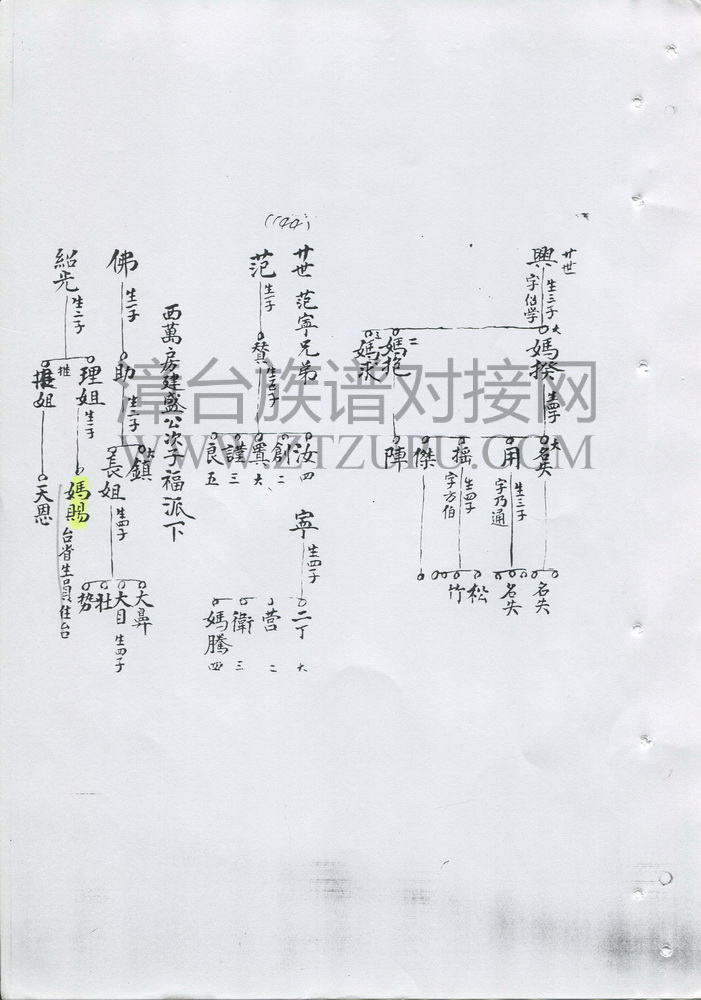 (144)
廿世
興
生三子
字伯学
大
媽揆
生四子
二
媽抱
三
媽求
大
名失
用
生三子
字乃通
搖
生四子
字方伯
傑
陣
名失
名失
松
竹
廿世 范寧兄弟
范
生一子
賛
生五子
汝 四
創 二
寘 大
謹 三
良 五
寧
生四子
二丁 大
营 二
衛 三
媽騰 四
西萬房建盛公次子福派下
佛
生一子
助
生二子
鎮
長姐
生四子
大鼻
大目
生四子
社
势
紹光
生二子
理姐
生一子
媽賜
台省生員住台
推
姐
天恩
漳台族谱对接网
WWW.ZTZUPU.COM